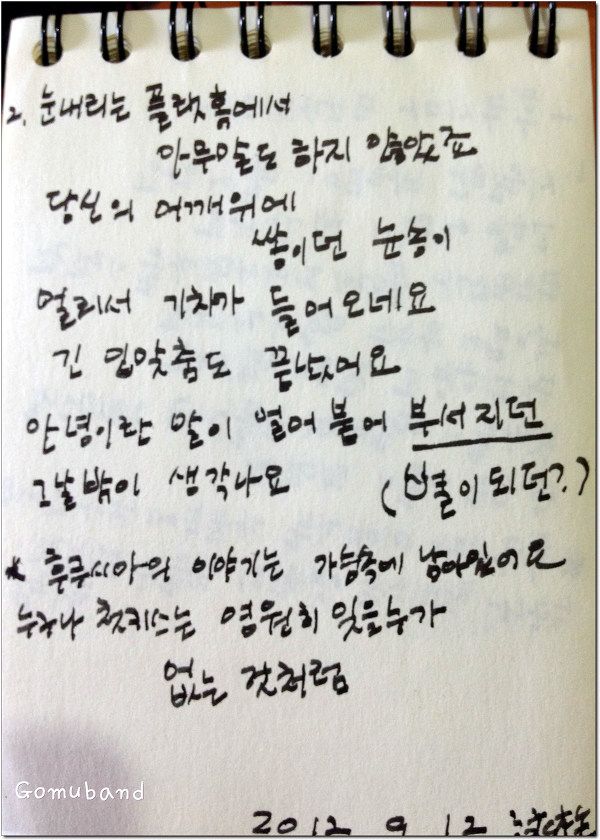 2. 눈내리는 플랫홈에서
아무말도 하지 않았죠
당신의 어깨위에
쌓이던 눈송이
멀리서 기차가 들어오네요
긴 입맞춤도 끝났어요
안녕이란 말이 얼어붙어 부서지던
그날밤이 생각나요 (별이되던?)
* 후쿠시아의 이야기는 가슴속에 남아있어요
누구나 첫키스는 영원히 잊을수가
없는 것처럼
Gomuband
2012 9 12